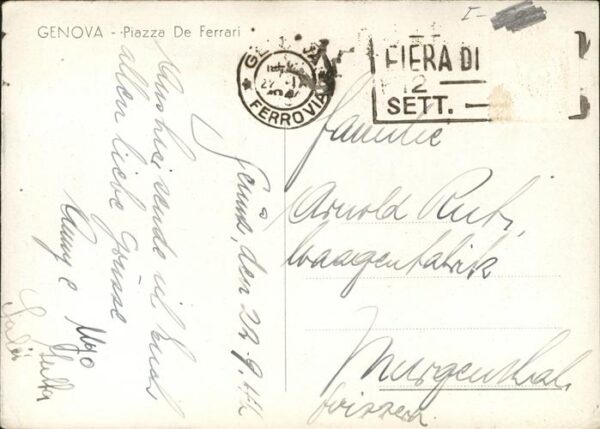 GENOVA - Piazza De Ferrari
I-
FERROVIA
FIERA DI
12
SETT. -
Genua, den 22.9.
sende ich Euch
allen liebe Grüsse
Hugo
Familie
Arnold
Waagenfabrik
Murgenthal
Svizzera